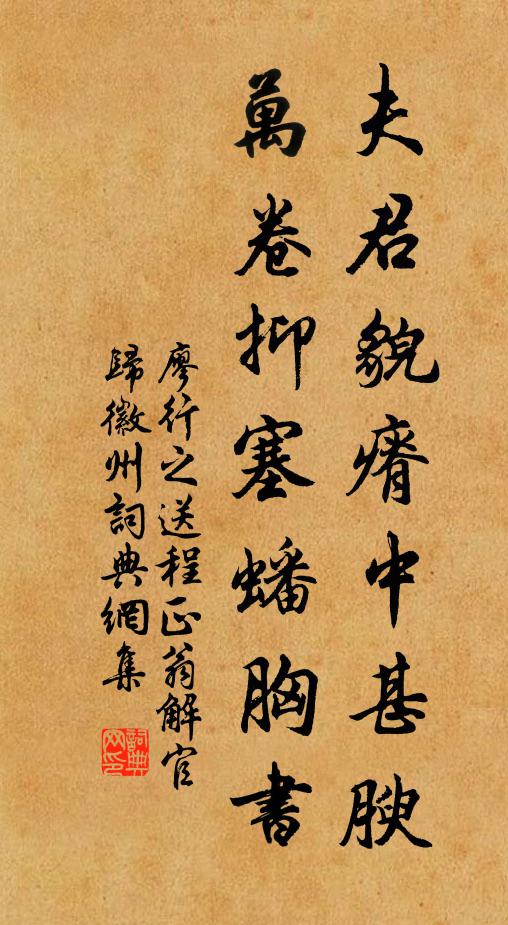 夫君貌瘠中甚腴
萬卷抑塞蟠胸書
廖行之送程正翁解官
歸徽州詞典網集
詞典网印